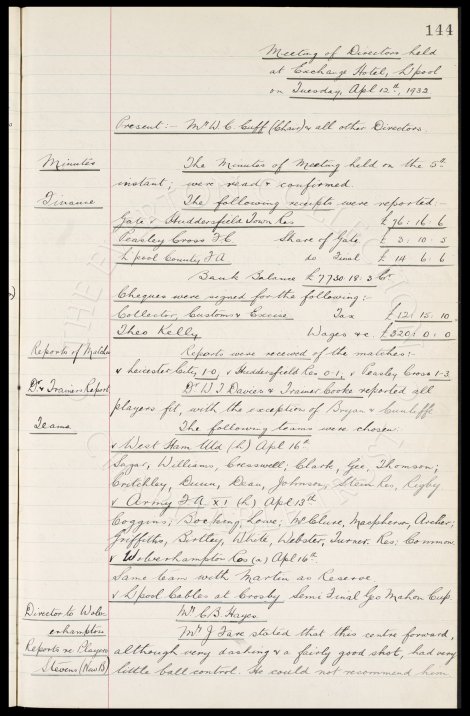 144
Meeting of Directors held
at Exchange Hotel, L'pool
on Tuesday, Apl 12th, 1932
Present :- Mr W. C. Cuff (Chair) & all other Directors.
Minutes
The Minutes of Meeting held on the 5th
instant, were read & confirmed.
Finance
The following receipts were reported:-
Gate v Huddersfield Town Res £76: 16: 6
Peasley Cross FC Share of Gate £ 3: 10: 5
L'pool County F A do Final £ 14: 6: 6
Bank Balance £7730: 18: 3 Cr.
Cheques were signed for the following:-
Collector, Customs & Excise Tax £121: 15: 10
Theo Kelly Wages &c. £320: 0: 0
Reports of Matches
Reports were received of the matches:-
v Leicester City, 1.0, v Huddersfield Res 0-1, v Peasley Cross 1-3
Dr. & Trainers Report
Dr W J Davies & Trainer Cooke reported all
players fit, with the exception of Bryan & Cunliffe
Teams
The following teams were chosen:
v West Ham Utd (h) Apl 16th.
Sagar, Williams, Cresswell; Clark, Gee, Thomson;
Critchley, Dunn, Dean, Johnson, Stein Res, Rigby.
v Army F.A. XI (h) Apl 13th.
Coggins; Bocking, Lowe; McClure, Macpherson, Archer;
Griffiths, Bottley, White, Webster, Turner. Res; Common
v Wolverhampton Res (a) Apl 16th.
Same team with Martin as Reserve
v L'pool Cables at Crosby Semi Final Geo Mahon Cup.
Director to Wolv-
erhampton
Mr. C. B. Hayes
Reports re Players
Stevens (New B)
Mr. J. Fare stated that this centre forward,
although very dashing & a fairly good shot, had very
little ball control. He could not recommend him.